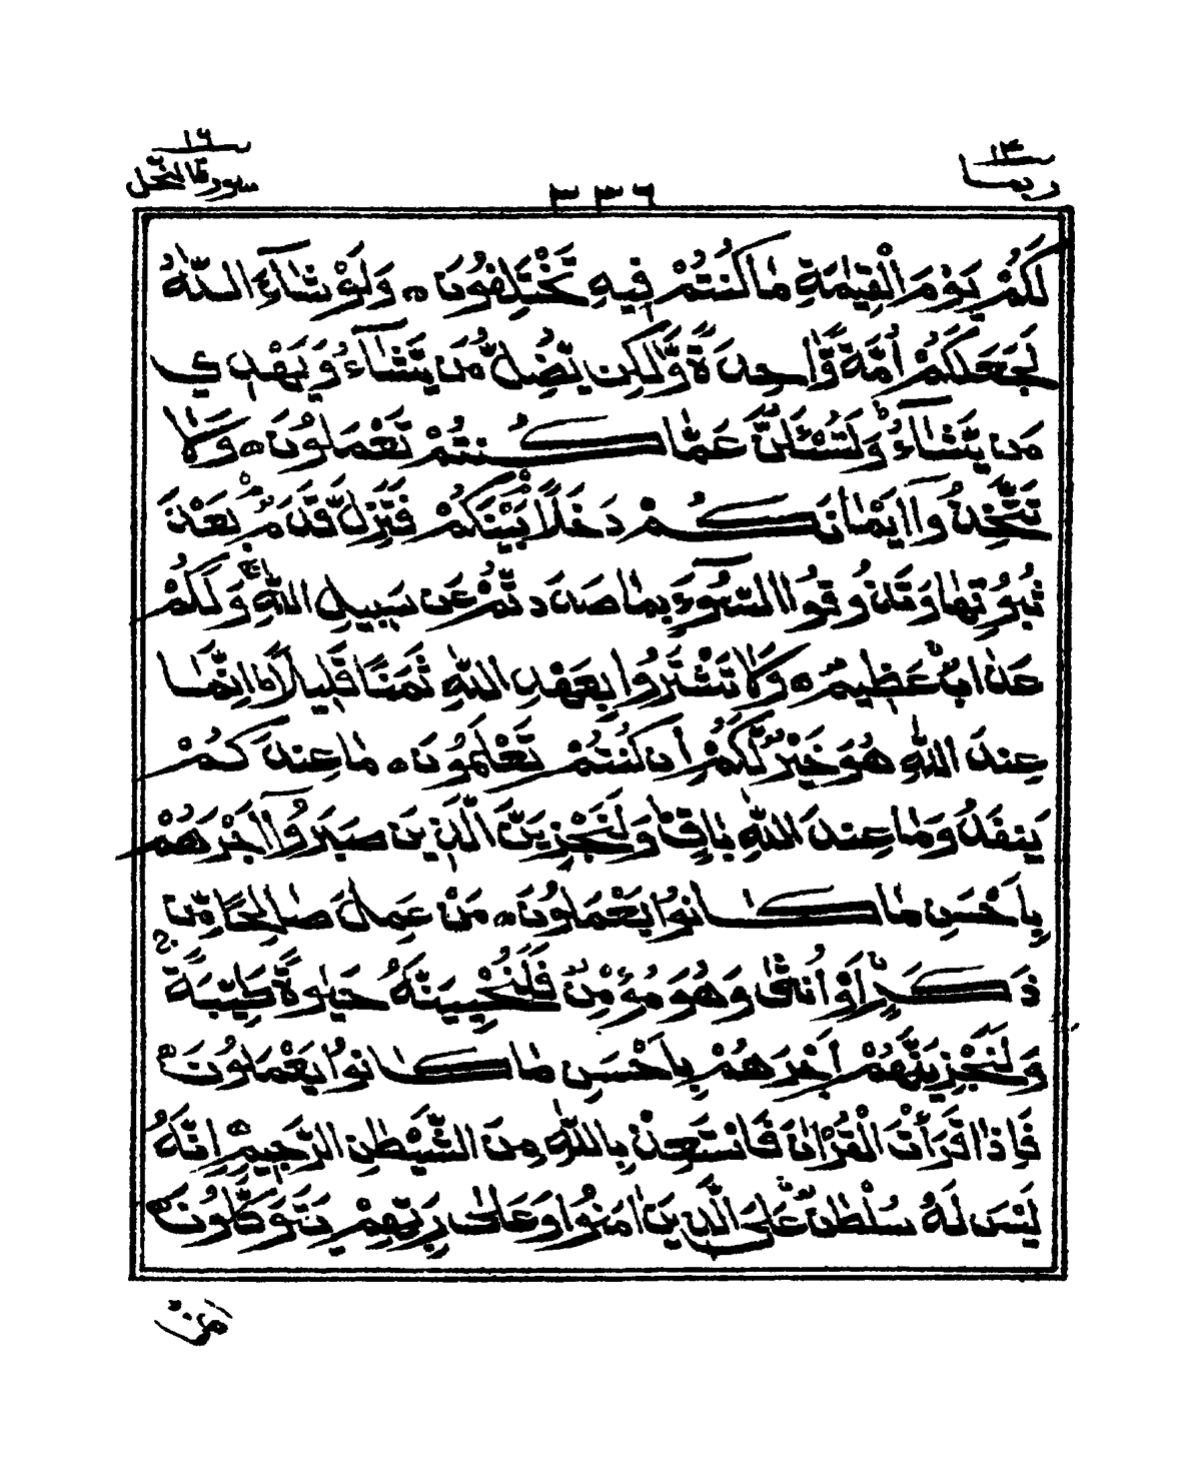 ربما ١٤
٣٣٦
سورة النحل ١٦
لَكُمْ يَوْمَ الْقِيٰمَةِ مَا كُنْتُمْ فِيهِ تَخْتَلِفُونَ ۝ وَلَوْ شَآءَ اللّٰهُ
لَجَعَلَكُمْ أُمَّةً وَّاحِدَةً وَّلٰكِن يُّضِلُّ مَن يَّشَآءُ وَيَهْدِي
مَن يَّشَآءُ ۚ وَلَتُسْئَلُنَّ عَمَّا كُنتُمْ تَعْمَلُونَ ۝ وَلَا
تَتَّخِذُوآ اَيْمَانَكُمْ دَخَلًا بَيْنَكُمْ فَتَزِلَّ قَدَمٌۢ بَعْدَ
ثُبُوتِهَا وَتَذُوقُوا السُّوٓءَ بِمَا صَدَدتُّمْ عَن سَبِيلِ اللّٰهِ ۚ وَلَكُمْ
عَذَابٌ عَظِيمٌ ۝ وَلَا تَشْتَرُوا بِعَهْدِ اللّٰهِ ثَمَنًا قَلِيلًا ۚ اِنَّمَا
عِندَ اللّٰهِ هُوَ خَيْرٌ لَّكُمْ اِن كُنتُمْ تَعْلَمُونَ ۝ مَا عِندَكُمْ
يَنفَدُ وَمَا عِندَ اللّٰهِ بَاقٍ ۗ وَلَنَجْزِيَنَّ الَّذِينَ صَبَرُوآ اَجْرَهُمْ
بِاَحْسَنِ مَا كَانُوا يَعْمَلُونَ ۝ مَنْ عَمِلَ صَالِحًا مِّن
ذَكَرٍ اَوْ اُنثٰى وَهُوَ مُؤْمِنٌ فَلَنُحْيِيَنَّهُ حَيٰوةً طَيِّبَةً ۚ
وَلَنَجْزِيَنَّهُمْ اَجْرَهُمْ بِاَحْسَنِ مَا كَانُوا يَعْمَلُونَ ۝
فَاِذَا قَرَأْتَ الْقُرْاٰنَ فَاسْتَعِذْ بِاللّٰهِ مِنَ الشَّيْطٰنِ الرَّجِيمِ ۝ اِنَّهُ
لَيْسَ لَهُ سُلْطٰنٌ عَلَى الَّذِينَ اٰمَنُوا وَعَلٰى رَبِّهِمْ يَتَوَكَّلُونَ ۝